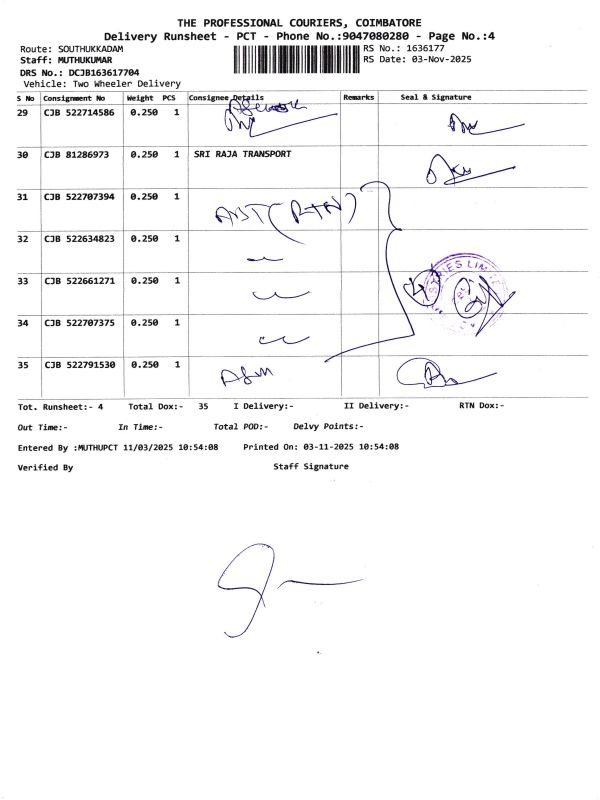 THE PROFESSIONAL COURIERS, COIMBATORE
Delivery Runsheet - PCT - Phone No.:9047080280 - Page No.:4
Route: SOUTHUKKADAM
RS No.: 1636177
Staff: MUTHUKUMAR
RS Date: 03-Nov-2025
DRS No.: DCJB163617704
Vehicle: Two Wheeler Delivery
S No Consignment No Weight PCS Consignee Details Remarks Seal & Signature
29 CJB 522714586 0.250 1
30 CJB 81286973 0.250 1 SRI RAJA TRANSPORT
31 CJB 522707394 0.250 1
32 CJB 522634823 0.250 1
33 CJB 522661271 0.250 1
34 CJB 522707375 0.250 1
35 CJB 522791530 0.250 1
Tot. Runsheet:- 4 Total Dox:- 35 I Delivery:- II Delivery:- RTN Dox:-
Out Time:- In Time:- Total POD:- Delvy Points:-
Entered By :MUTHUPCT 11/03/2025 10:54:08 Printed On: 03-11-2025 10:54:08
Verified By Staff Signature